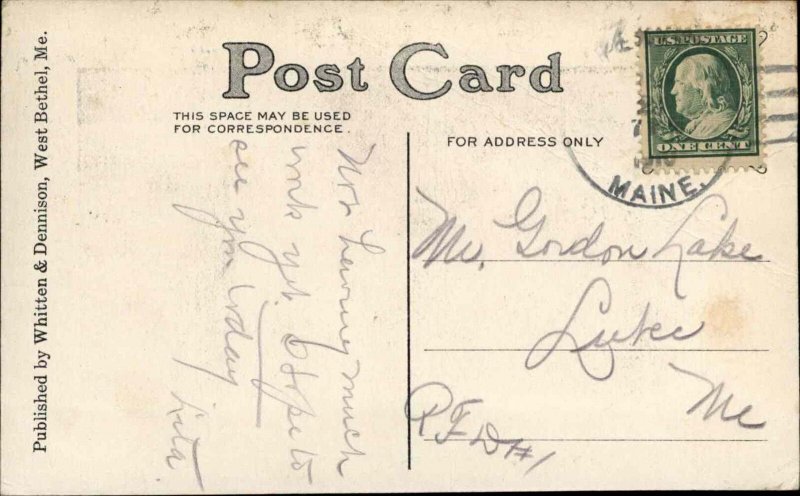 Published by Whitten & Dennison, West Bethel, Me.
Post Card
THIS SPACE MAY BE USED
FOR CORRESPONDENCE.
FOR ADDRESS ONLY
U.S. POSTAGE
ONE CENT
1910
MAINE.
Not having much
ink yet. Hope to
see you today
Lita
Mr. Gordon Lake
Luke
Me
R F D #1